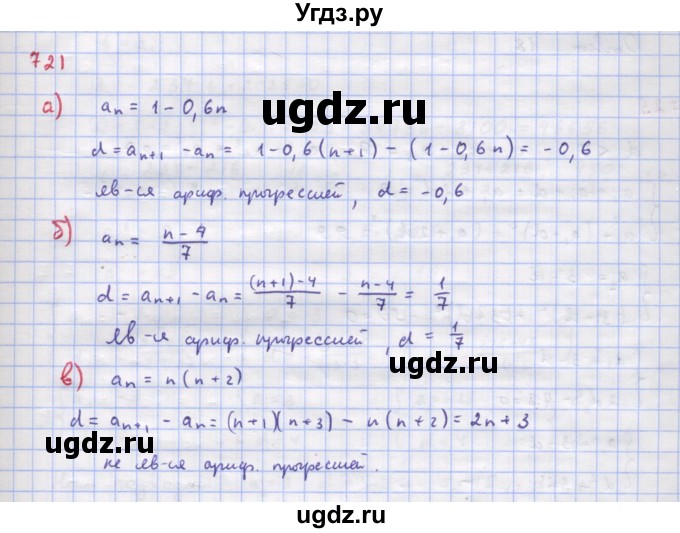 Угдз.ру
721
а) aₙ = 1 - 0,6n
ugdz.ru
d = aₙ₊₁ - aₙ = 1 - 0,6(n+1) - (1 - 0,6n) = -0,6
яв-ся ариф. прогрессией, d = -0,6
б) aₙ = (n-4)/7
d = aₙ₊₁ - aₙ = ((n+1)-4)/7 - (n-4)/7 = 1/7
ugdz.ru ugdz.ru
яв-я ариф. прогрессией, d = 1/7
в) aₙ = n(n+2)
d = aₙ₊₁ - aₙ = (n+1)(n+3) - n(n+2) = 2n+3
ugdz.ru
не яв-ся ариф. прогрессией.
ugdz.ru